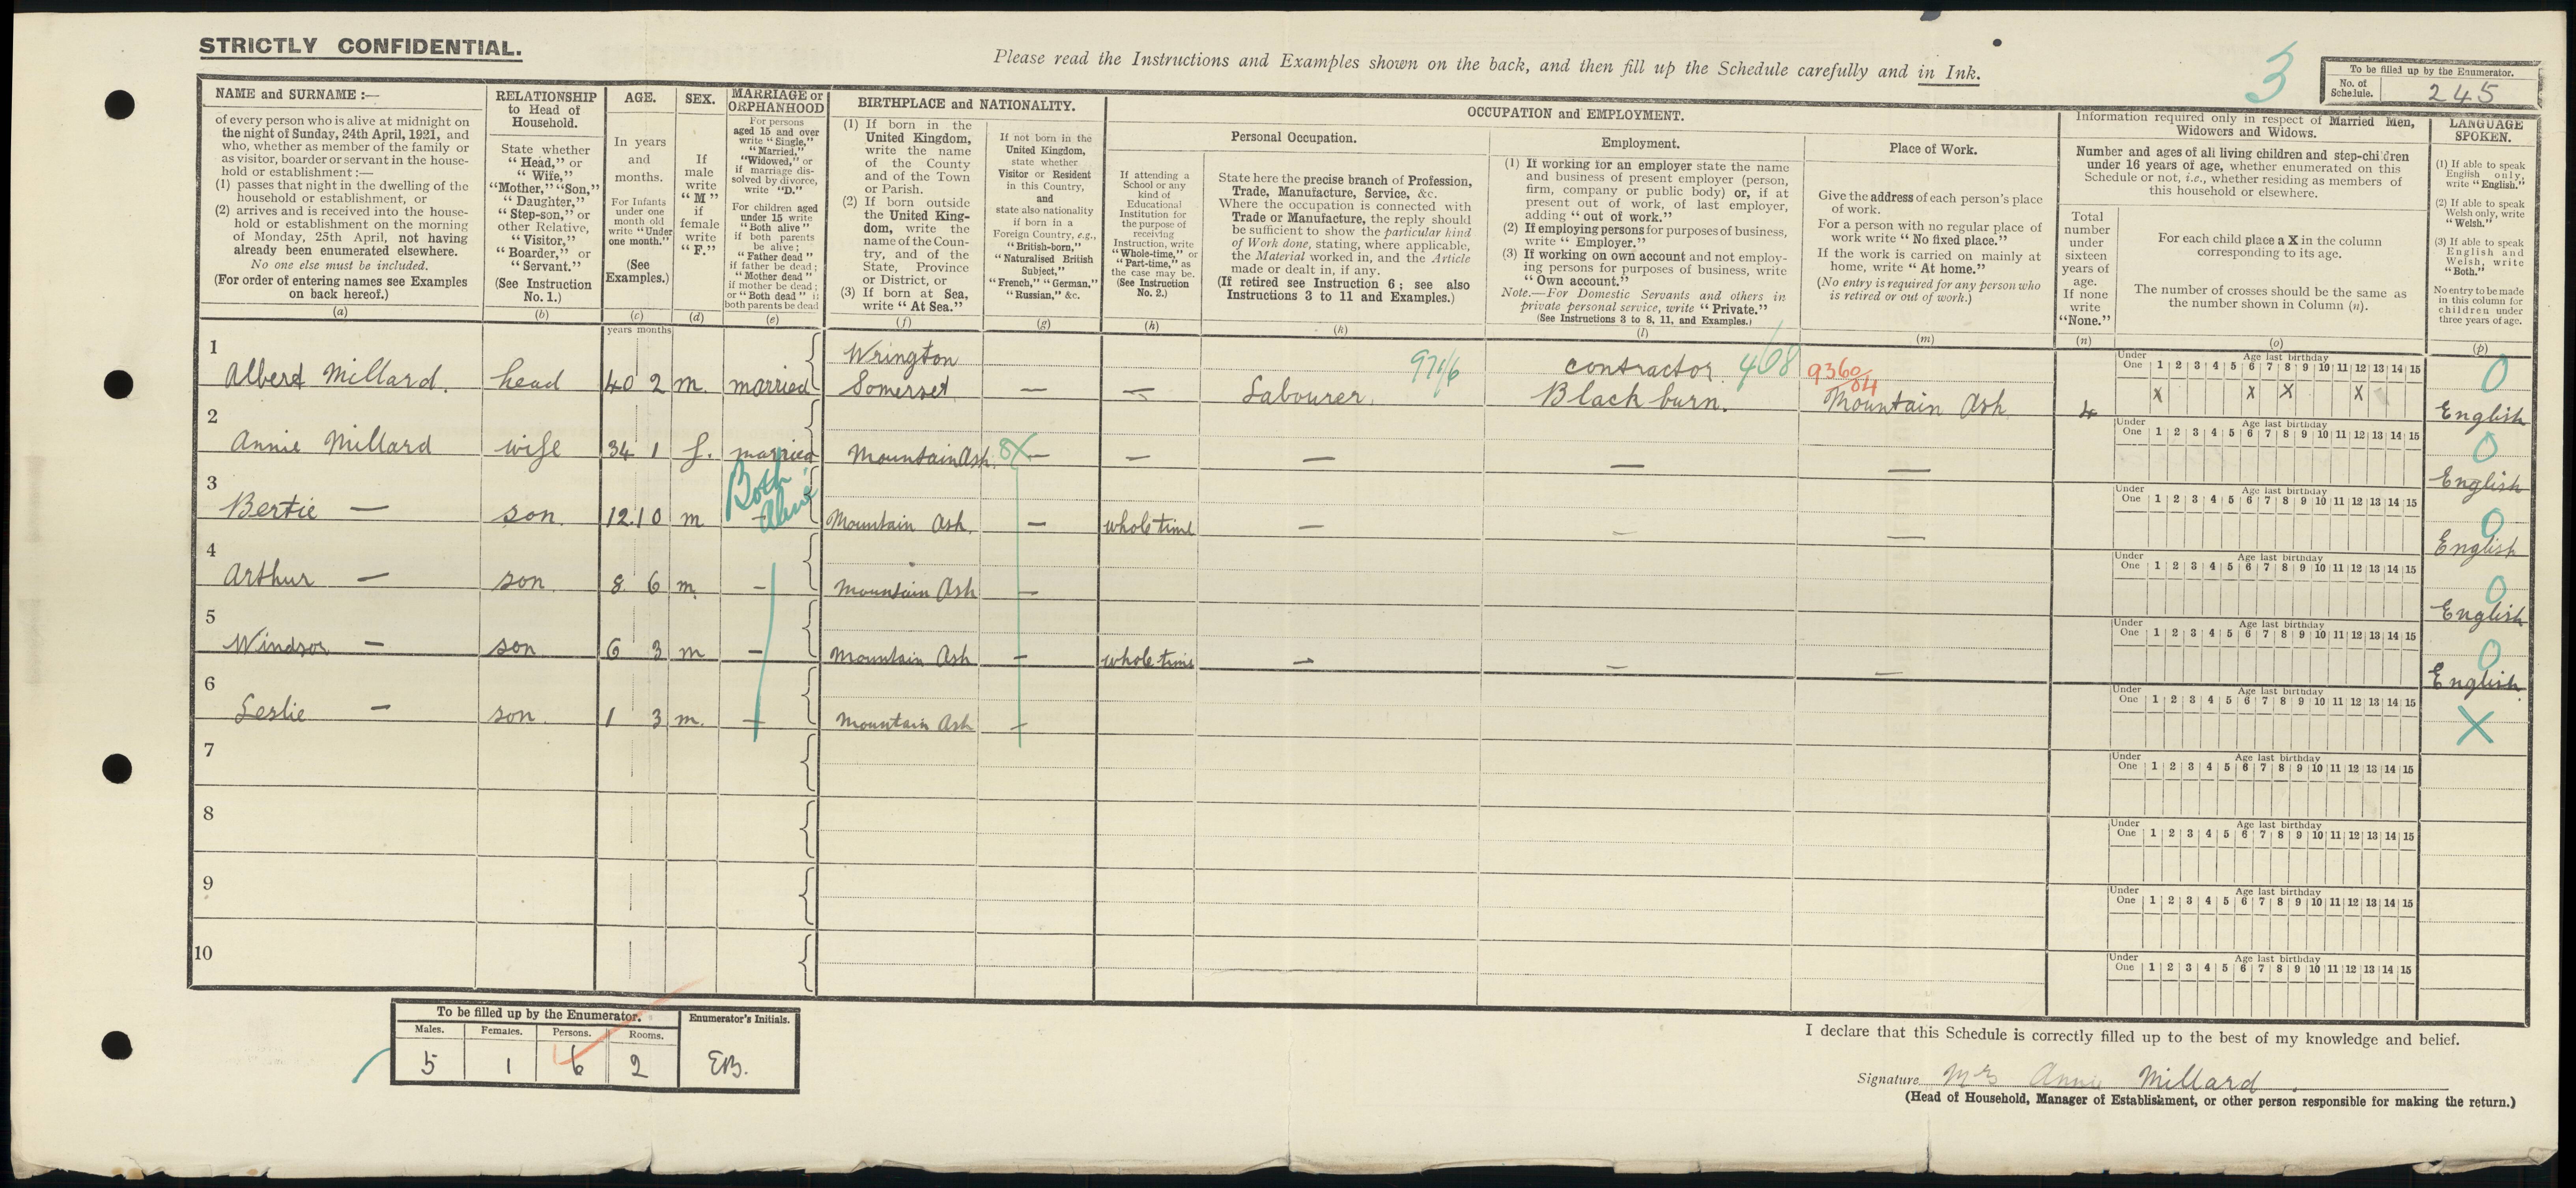 STRICTLY CONFIDENTIAL.
Please read the Instructions and Examples shown on the back, and then fill up the Schedule carefully and in Ink.
3
To be filled up by the Enumerator.
No. of Schedule. 245
NAME and SURNAME :—
of every person who is alive at midnight on
the night of Sunday, 24th April, 1921, and
who, whether as member of the family or
as visitor, boarder or servant in the house-
hold or establishment :—
(1) passes that night in the dwelling of the
household or establishment, or
(2) arrives and is received into the house-
hold or establishment on the morning
of Monday, 25th April, not having
already been enumerated elsewhere.
No one else must be included.
(For order of entering names see Examples
on back hereof.)
(a)
RELATIONSHIP
to Head of
Household.
State whether
"Head," or
"Wife,"
"Mother," "Son,"
"Daughter,"
"Step-son," or
other Relative,
"Visitor,"
"Boarder," or
"Servant."
(See Instruction
No. 1.)
(b)
AGE.
In years
and
months.
For Infants
under one
month old
write "Under
one month."
(See
Examples.)
(c)
SEX.
If
male
write
"M"
if
female
write
"F."
(d)
MARRIAGE or
ORPHANHOOD
For persons
aged 15 and over
write "Single,"
"Married,"
"Widowed," or
if marriage dis-
solved by divorce,
write "D."
For children aged
under 15 write
"Both alive"
if both parents
be alive;
"Father dead"
if father be dead;
"Mother dead"
if mother be dead;
or "Both dead" if
both parents be dead
(e)
BIRTHPLACE and NATIONALITY.
(1) If born in the
United Kingdom,
write the name
of the County
and of the Town
or Parish.
(2) If born outside
the United King-
dom, write the
name of the Coun-
try, and of the
State, Province
or District, or
(3) If born at Sea,
write "At Sea."
(f)
If not born in the
United Kingdom,
state whether
Visitor or Resident
in this Country,
and
state also nationality
if born in a
Foreign Country, e.g.,
"British-born,"
"Naturalised British
Subject,"
"French," "German,"
"Russian," &c.
(g)
OCCUPATION and EMPLOYMENT.
Personal Occupation.
If attending a
School or any
kind of
Educational
Institution for
the purpose of
receiving
Instruction, write
"Whole-time," or
"Part-time," as
the case may be.
(See Instruction
No. 2.)
(h)
State here the precise branch of Profession,
Trade, Manufacture, Service, &c.
Where the occupation is connected with
Trade or Manufacture, the reply should
be sufficient to show the particular kind
of Work done, stating, where applicable,
the Material worked in, and the Article
made or dealt in, if any.
(If retired see Instruction 6; see also
Instructions 3 to 11 and Examples.)
(k)
Employment.
(1) If working for an employer state the name
and business of present employer (person,
firm, company or public body) or, if at
present out of work, of last employer,
adding "out of work."
(2) If employing persons for purposes of business,
write "Employer."
(3) If working on own account and not employ-
ing persons for purposes of business, write
"Own account."
Note.—For Domestic Servants and others in
private personal service, write "Private."
(See Instructions 3 to 8, 11, and Examples.)
(l)
Place of Work.
Give the address of each person's place
of work.
For a person with no regular place of
work write "No fixed place."
If the work is carried on mainly at
home, write "At home."
(No entry is required for any person who
is retired or out of work.)
(m)
Information required only in respect of Married Men,
Widowers and Widows.
Number and ages of all living children and step-children
under 16 years of age, whether enumerated on this
Schedule or not, i.e., whether residing as members of
this household or elsewhere.
Total
number
under
sixteen
years of
age.
If none
write
"None."
(n)
For each child place a X in the column
corresponding to its age.
The number of crosses should be the same as
the number shown in Column (n).
(o)
LANGUAGE
SPOKEN.
(1) If able to speak
English only,
write "English."
(2) If able to speak
Welsh only, write
"Welsh."
(3) If able to speak
English and
Welsh, write
"Both."
No entry to be made
in this column for
children under
three years of age.
(p)
years months
1 Albert Millard. head 40 2 m. married Wrington Somerset — — Labourer. 971/6 contractor. 408 Blackburn. 9360/04 Mountain Ash 4 0 English
Under One 1 2 3 4 5 6 7 8 9 10 11 12 13 14 15
Age last birthday
X X X X
2 Annie Millard wife 34 1 f. married Mountain Ash. 8X — — — — — 0 English
Under One 1 2 3 4 5 6 7 8 9 10 11 12 13 14 15
Age last birthday
3 Bertie — son. 12 10 m — Both alive Mountain Ash. — whole time — — — 0 English
Under One 1 2 3 4 5 6 7 8 9 10 11 12 13 14 15
Age last birthday
4 Arthur — son. 8 6 m. — Mountain Ash — 0 English
Under One 1 2 3 4 5 6 7 8 9 10 11 12 13 14 15
Age last birthday
5 Windsor — son 6 3 m — Mountain Ash — whole time — — — 0 English
Under One 1 2 3 4 5 6 7 8 9 10 11 12 13 14 15
Age last birthday
6 Leslie — son. 1 3 m. — Mountain Ash — X
Under One 1 2 3 4 5 6 7 8 9 10 11 12 13 14 15
Age last birthday
7
Under One 1 2 3 4 5 6 7 8 9 10 11 12 13 14 15
Age last birthday
8
Under One 1 2 3 4 5 6 7 8 9 10 11 12 13 14 15
Age last birthday
9
Under One 1 2 3 4 5 6 7 8 9 10 11 12 13 14 15
Age last birthday
10
Under One 1 2 3 4 5 6 7 8 9 10 11 12 13 14 15
Age last birthday
To be filled up by the Enumerator.
Males. Females. Persons. Rooms. Enumerator's Initials.
5 1 6 2 EB.
I declare that this Schedule is correctly filled up to the best of my knowledge and belief.
Signature Mrs Annie Millard.
(Head of Household, Manager of Establishment, or other person responsible for making the return.)